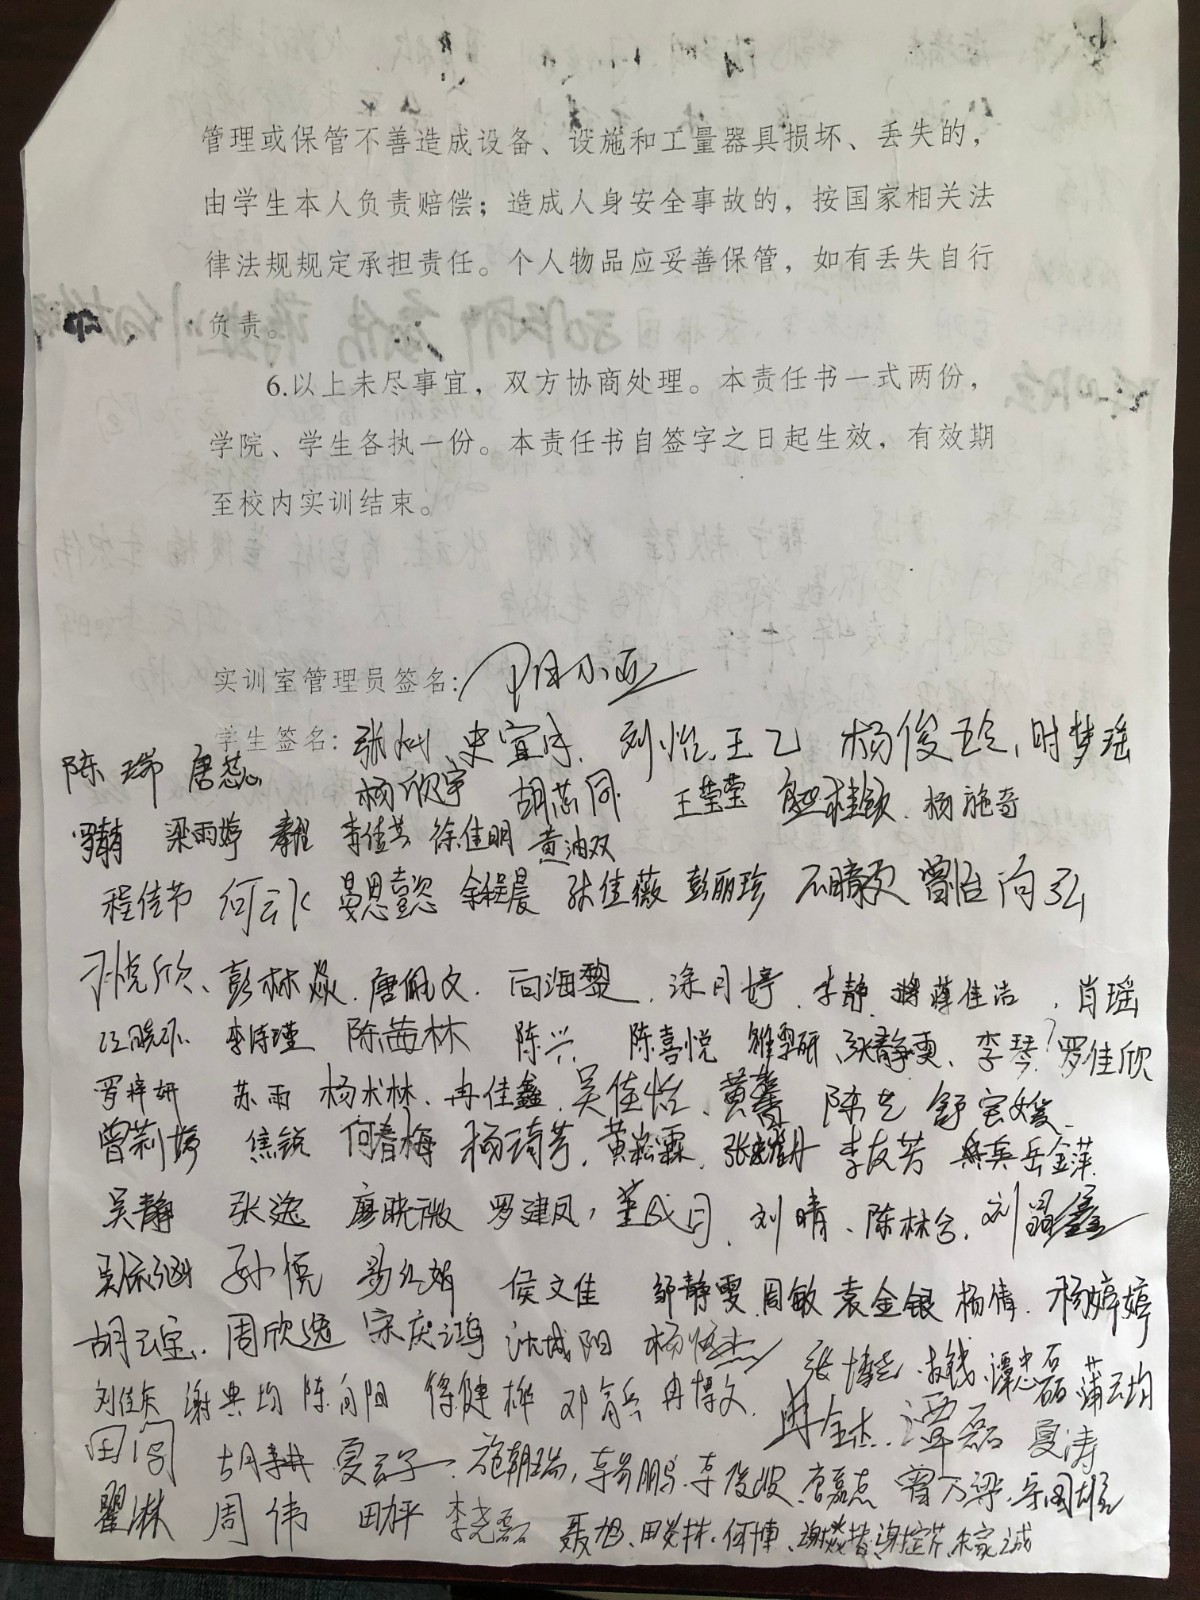 管理或保管不善造成设备、设施和工量器具损坏、丢失的，
由学生本人负责赔偿；造成人身安全事故的，按国家相关法
律法规规定承担责任。个人物品应妥善保管，如有丢失自行
负责。
6.以上未尽事宜，双方协商处理。本责任书一式两份，
学院、学生各执一份。本责任书自签字之日起生效，有效期
至校内实训结束。
实训室管理员签名：
学生签名： 刘怡、王乙 杨俊玲、时梦瑶
陈瑞 唐蕊 杨欣宇 胡芯同 王莹莹 杨施奇
梁雨婷 李佳芸 徐佳明 黄油双
程佳节 何云冰 晏思懿 余程晨 张佳薇 彭丽珍 曾怡 向弘
孙悦欣、彭林焱、唐佩文、向海黎、涂月婷、李静、蒋佳洁、肖瑶
李诗瑾 陈茜林 陈兴 陈喜悦 张静雯、李琴、罗佳欣
罗梓妍 苏雨 杨术林、冉佳鑫、吴佳怡、黄馨 陈艺 舒宝媛
曾莉婷 焦锐 何春梅 杨琦芳、黄淞霖、李友芳 岳金萍
吴静 张逸 廖晓微 罗建凤、董成月、刘晴、陈林合、刘晶鑫
孙悦 易红娟 侯文佳 邹静雯 周敏 袁金银 杨倩、杨婷婷
周欣逸 宋庆鸿 沈城阳 谭忠磊 蒲云均
刘佳东 谢典均 陈向阳 邓育兵 冉博文、冉金杰、谭磊 夏涛
胡耕 夏云子、施朝瑞、李俊波、唐嘉杰 曾万梁、
瞿淋 周伟 田平 李尧磊 聂旭、何博、